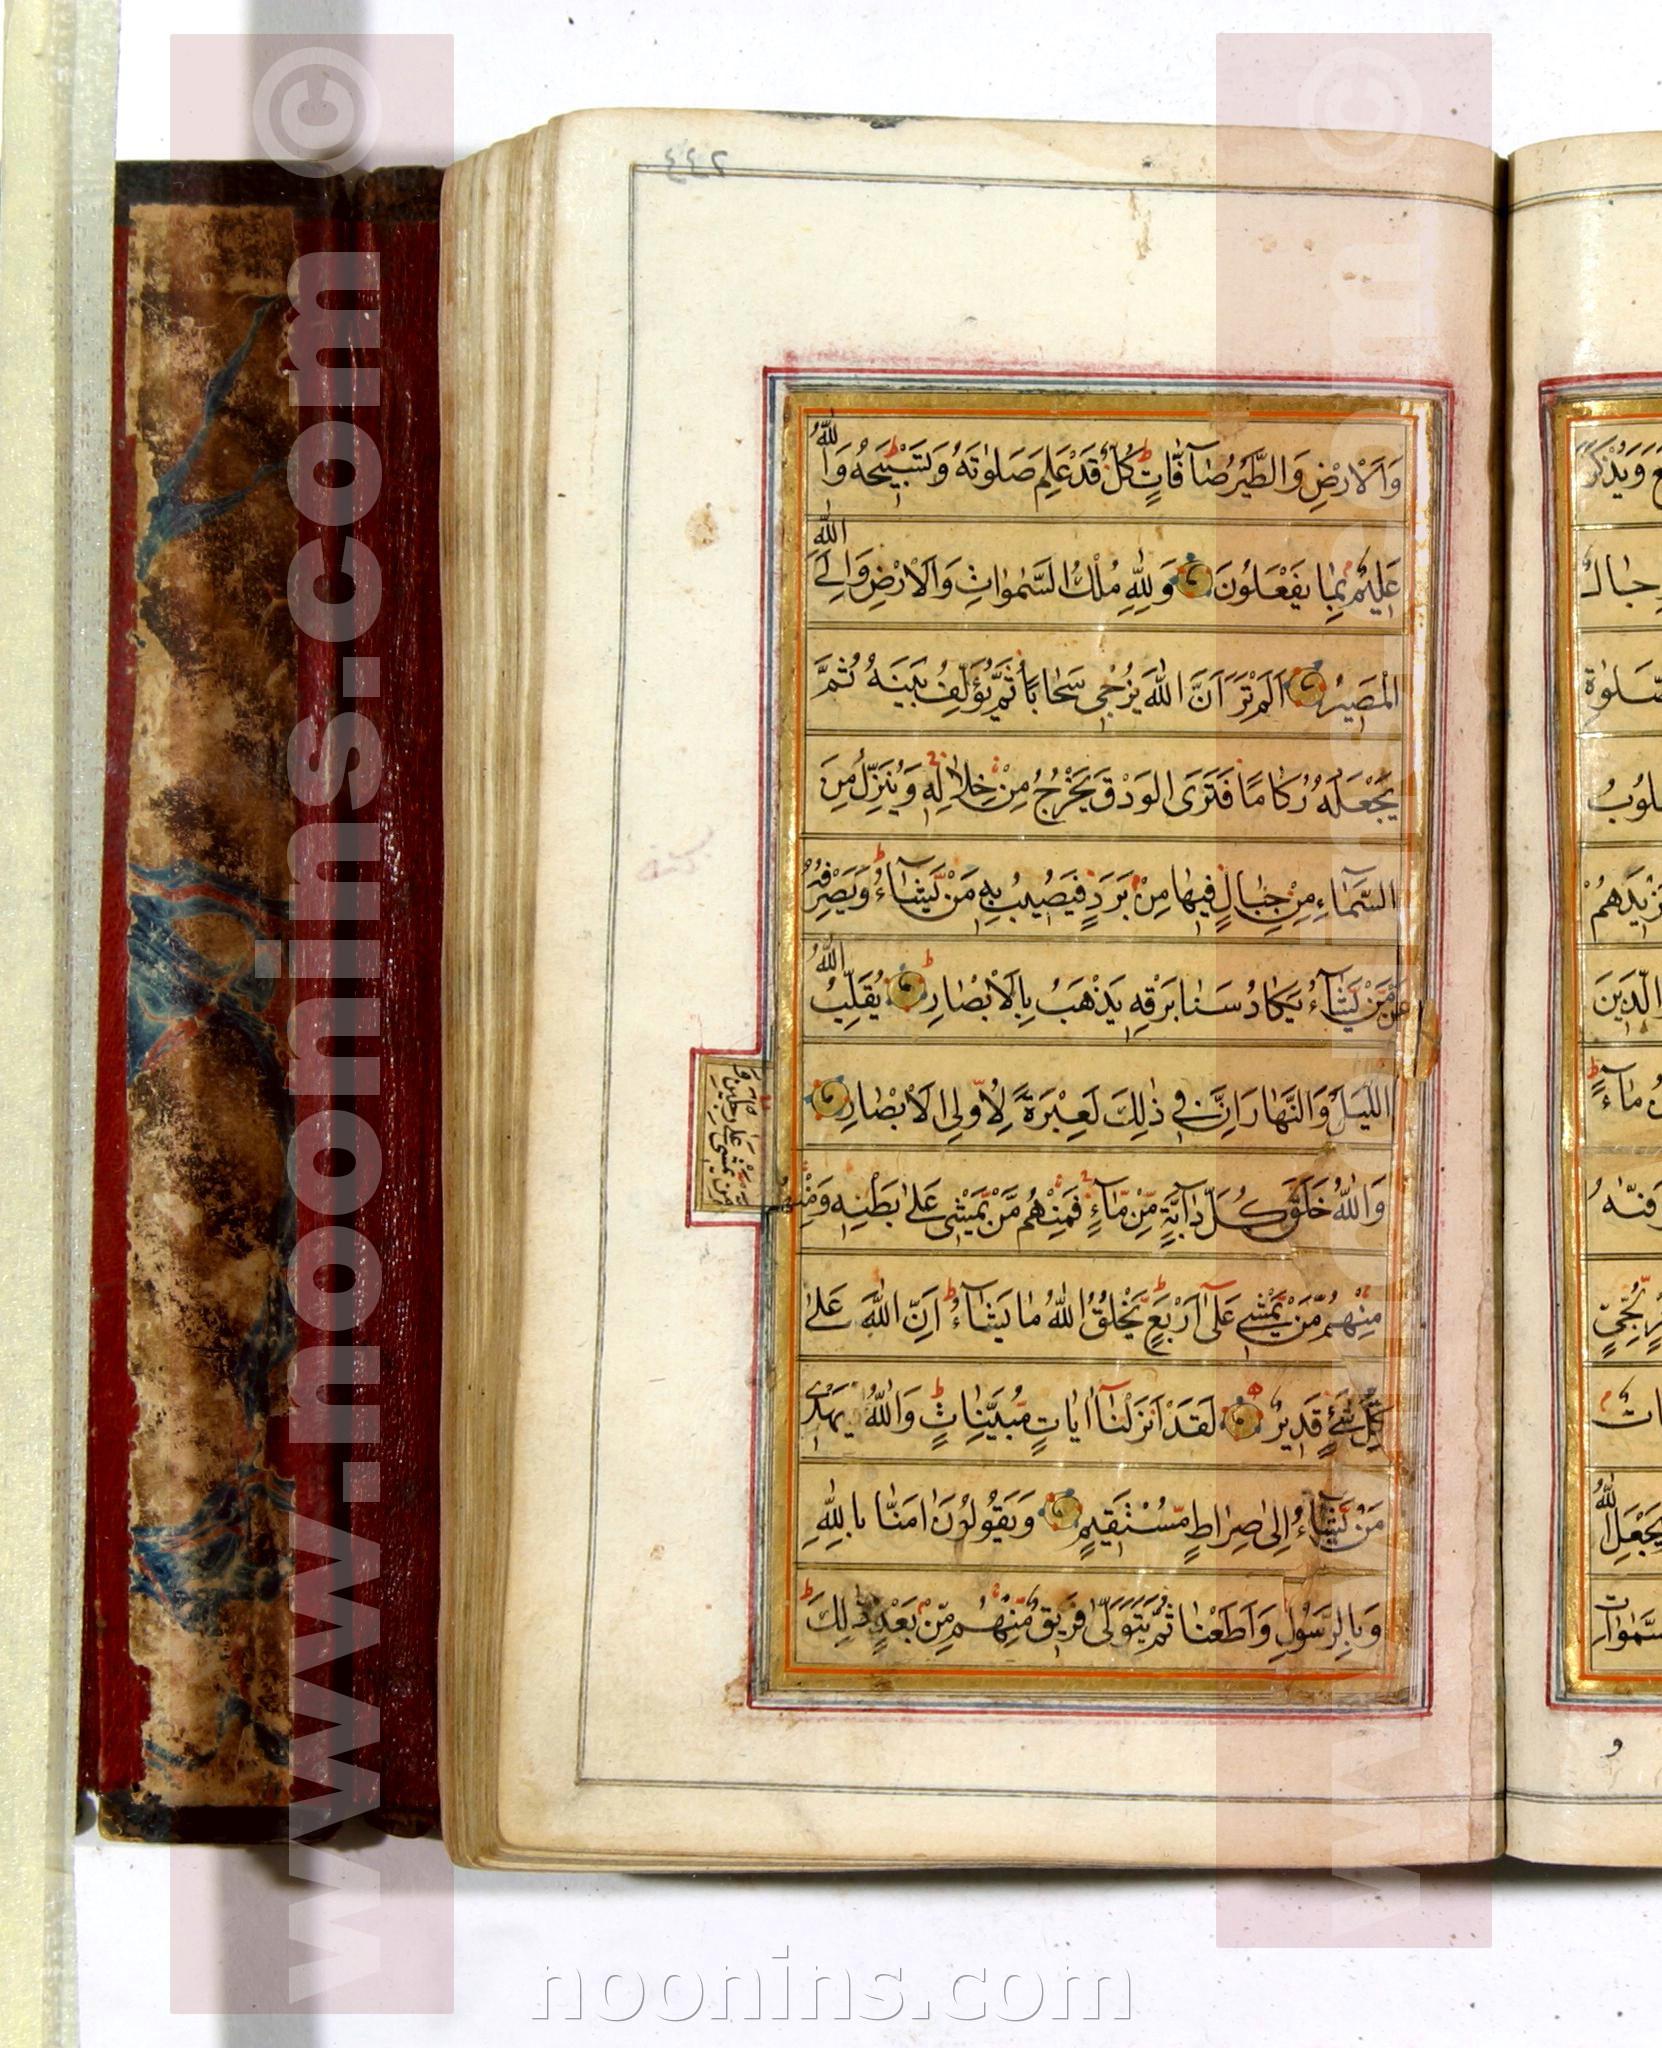 وَالْاَرْضِ وَالطَّيْرُ صٰآفّاتٍ كُلٌّ قَدْ عَلِمَ صَلٰوتَهُ وَتَسْبيحَهُ وَاللّٰهُ
عَليمٌ بِمٰا يَفْعَلُونَ وَلِلّٰهِ مُلْكُ السَّمٰوٰاتِ وَالْاَرْضِ وَاِلَى اللّٰهِ
الْمَصيرُ اَلَمْ تَرَ اَنَّ اللّٰهَ يُزْجى سَحٰاباً ثُمَّ يُؤَلِّفُ بَيْنَهُ ثُمَّ
يَجْعَلُهُ رُكٰاماً فَتَرَى الوَدْقَ يَخْرُجُ مِنْ خِلاٰلِهِ وَيُنَزِّلُ مِنَ
السَّمٰاءِ مِنْ جِبٰالٍ فيهٰا مِنْ بَرَدٍ فَيُصيبُ بِهِ مَنْ يَشٰآءُ وَيَصْرِفُهُ
عَنْ مَنْ يَشٰآءُ يَكٰادُ سَنٰا بَرْقِهِ يَذْهَبُ بِالْاَبْصٰارِ يُقَلِّبُ اللّٰهُ
اللَّيْلَ وَالنَّهٰارَ اِنَّ فى ذٰلِكَ لَعِبْرَةً لِاُولِى الْاَبْصٰارِ
وَاللّٰهُ خَلَقَ كُلَّ دٰآبَّةٍ مِنْ مٰآءٍ فَمِنْهُمْ مَنْ يَمْشى عَلىٰ بَطْنِهِ وَمِنْهُمْ
مَنْ يَمْشى عَلىٰ رِجْلَيْنِ وَ
مِنْهُمْ مَنْ يَمْشى عَلىٰٓ اَرْبَعٍ يَخْلُقُ اللّٰهُ مٰا يَشٰآءُ اِنَّ اللّٰهَ عَلىٰ
كُلِّ شَىْءٍ قَديرٌ لَقَدْ اَنْزَلْنٰآ اٰيٰاتٍ مُبَيِّنٰاتٍ وَاللّٰهُ يَهْدى
مَنْ يَشٰآءُ اِلىٰ صِرٰاطٍ مُسْتَقيمٍ وَيَقُولُونَ اٰمَنّٰا بِاللّٰهِ
وَبِالرَّسُولِ وَاَطَعْنٰا ثُمَّ يَتَوَلّىٰ فَريقٌ مِنْهُمْ مِنْ بَعْدِ ذٰلِكَ
www.noonins.com ©
noonins.com